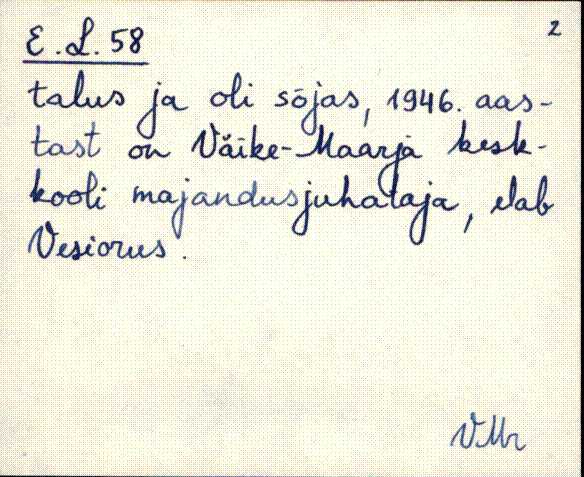 2
E.L. 58
talus ja oli sõjas, 1946. aas-
tast on Väike-Maarja kesk-
kooli majandusjuhataja, elab
Vesiorus.
VMr